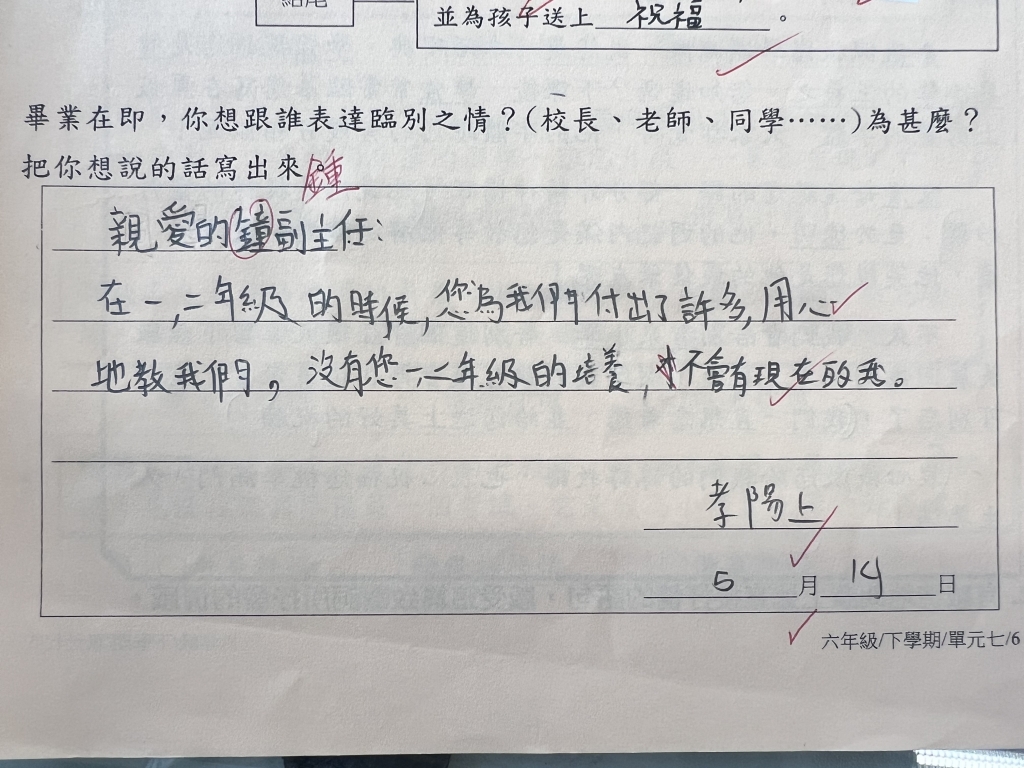 結尾
並為孩子送上 祝福 。
畢業在即，你想跟誰表達臨別之情？(校長、老師、同學……)為甚麼？
把你想說的話寫出來。
鍾
親愛的鐘副主任：
在一,二年級的時候,您為我們付出了許多,用心
地教我們。沒有您一,二年級的培養,不會有現在的我。
孝陽上
5 月 14 日
六年級/下學期/單元七/6